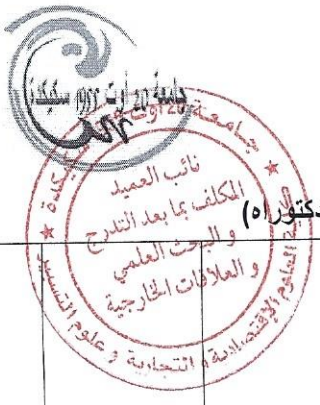 جامعة 20 أوت 1955 سكيكدة
جامعة 20 أوت
نائب العميد
المكلف بما بعد التدرج
و البحث العلمي
و العلاقات الخارجية
العلوم الإقتصادية، التجارية و علوم التسيير
دكتوراه)